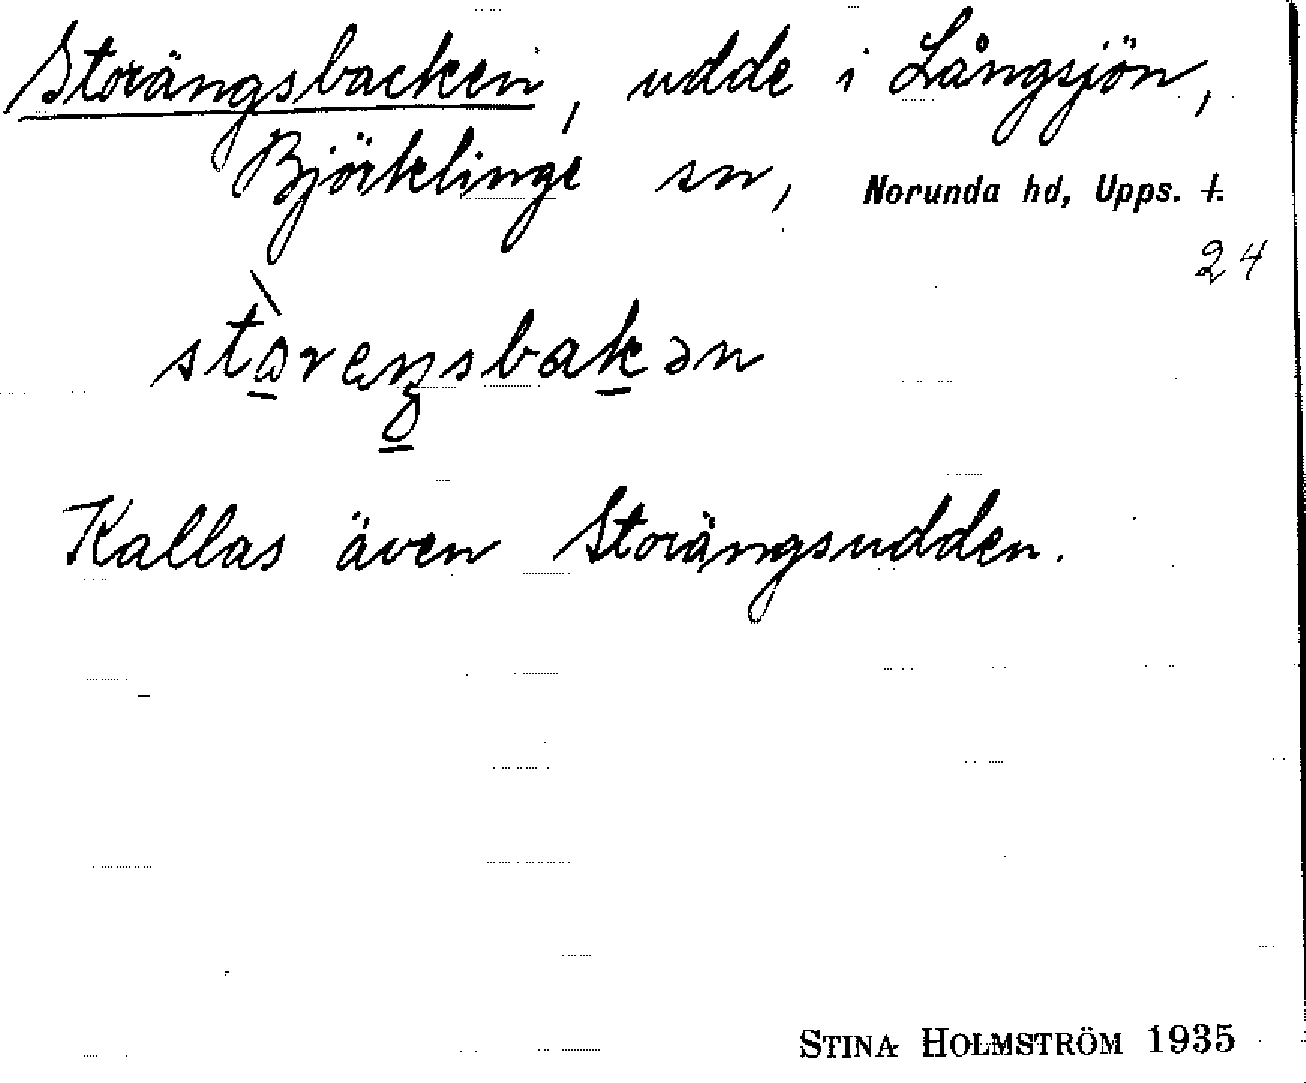 Storängsbacken, udde i Långsjön,
Björklinge sn, Norunda hd, Upps. l.
24
stòrengsbakən
Kallas även Storängsudden.
STINA HOLMSTRÖM 1935